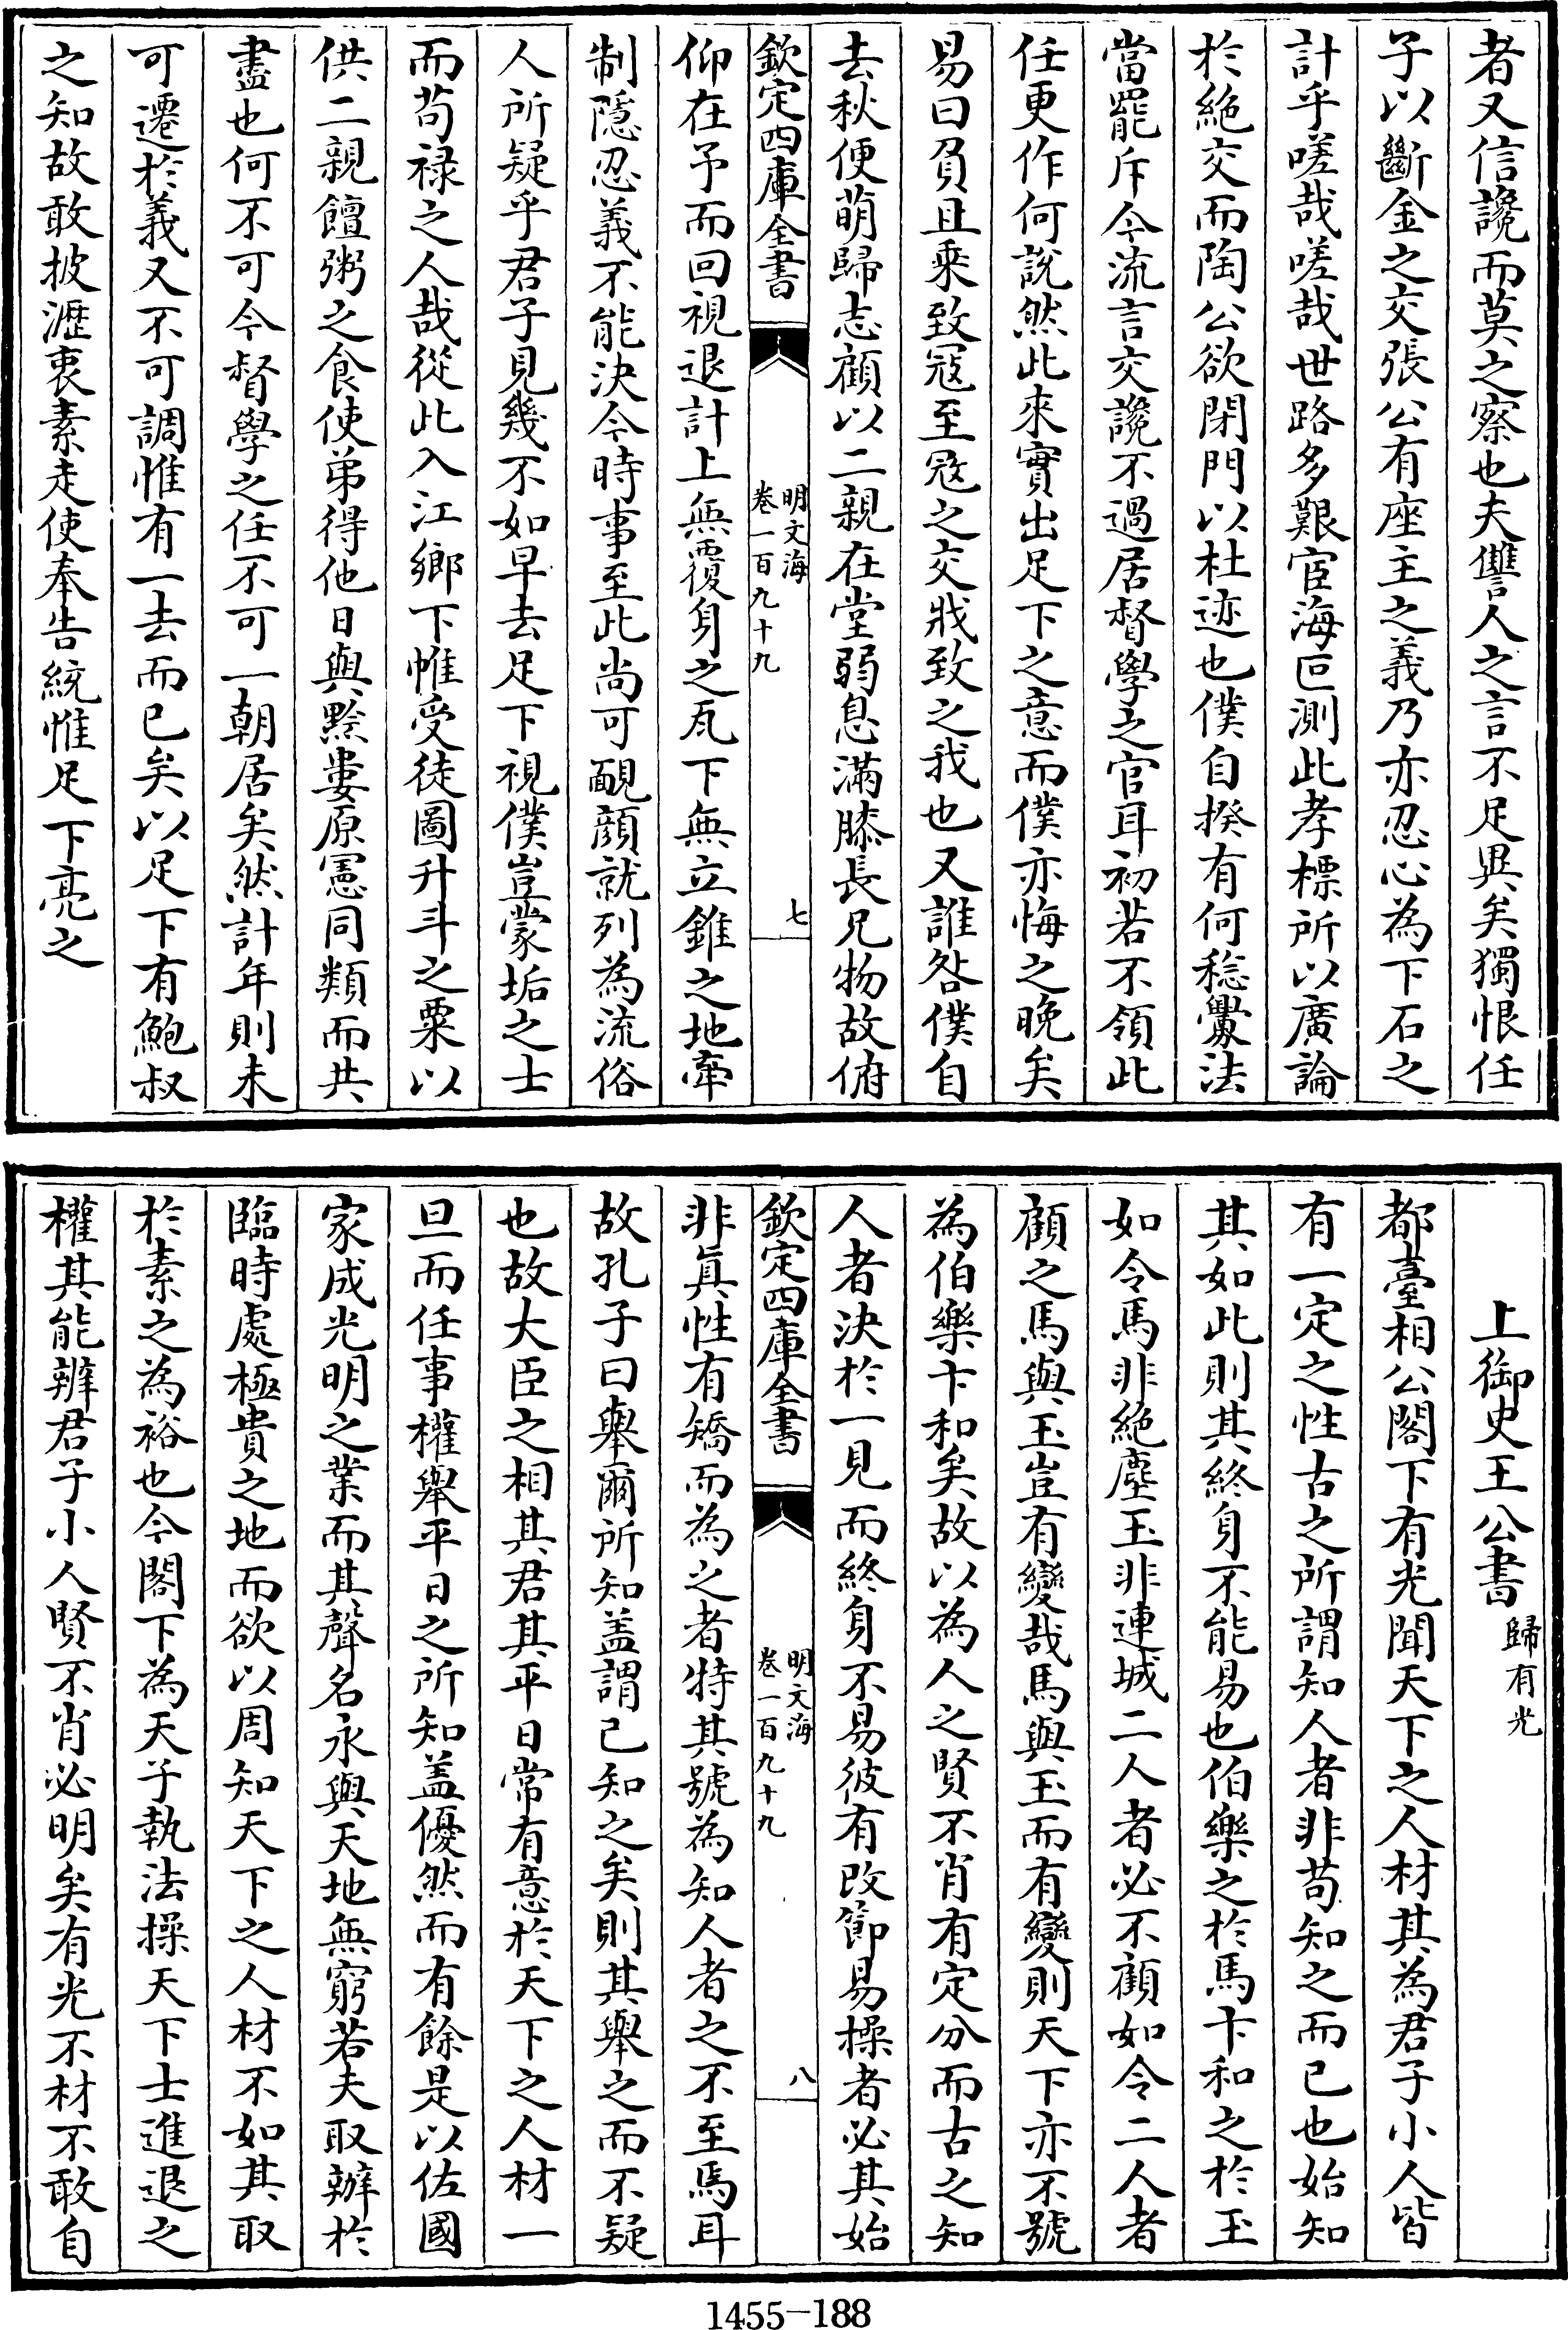 者又信讒而莫之察也夫讐人之言不足異矣獨恨任
子以斷金之交張公有座主之義乃亦忍心為下石之
計乎嗟哉嗟哉世路多艱宦海叵測此孝標所以廣論
於絶交而陶公欲閉門以杜迹也僕自揆有何稔釁法
當罷斥今流言交讒不過居督學之官耳初若不領此
任更作何說然此來實出足下之意而僕亦悔之晚矣
易曰負且乘致寇至寇之交戕致之我也又誰咎僕自
去秋便萌歸志顧以二親在堂弱息滿膝長兄物故俯
欽定四庫全書
明文海
卷一百九十九
七
仰在予而回視退計上無覆身之瓦下無立錐之地牽
制隱忍義不能決今時事至此尚可靦顔就列為流俗
人所疑乎君子見幾不如早去足下視僕豈蒙垢之士
而苟禄之人哉從此入江鄉下帷受徒圖升斗之粟以
供二親饘粥之食使弟得他日與黔婁原憲同類而共
盡也何不可今督學之任不可一朝居矣然計年則未
可遷於義又不可調惟有一去而已矣以足下有鮑叔
之知故敢披瀝衷素走使奉告統惟足下亮之
上御史王公書
歸有光
都臺相公閣下有光聞天下之人材其為君子小人皆
有一定之性古之所謂知人者非苟知之而已也始知
其如此則其終身不能易也伯樂之於馬卞和之於玉
如令馬非絶塵玉非連城二人者必不顧如令二人者
顧之馬與玉豈有變哉馬與玉而有變則天下亦不號
為伯樂卞和矣故以為人之賢不肖有定分而古之知
人者決於一見而終身不易彼有改節易操者必其始
欽定四庫全書
明文海
卷一百九十九
八
非真性有矯而為之者特其號為知人者之不至焉耳
故孔子曰舉爾所知盖謂已知之矣則其舉之而不疑
也故大臣之相其君其平日常有意於天下之人材一
旦而任事權舉平日之所知盖優然而有餘是以佐國
家成光明之業而其聲名永與天地無窮若夫取辦於
臨時處極貴之地而欲以周知天下之人材不如其取
於素之為裕也今閣下為天子執法操天下士進退之
權其能辨君子小人賢不肖必明矣有光不材不敢自
1455-188